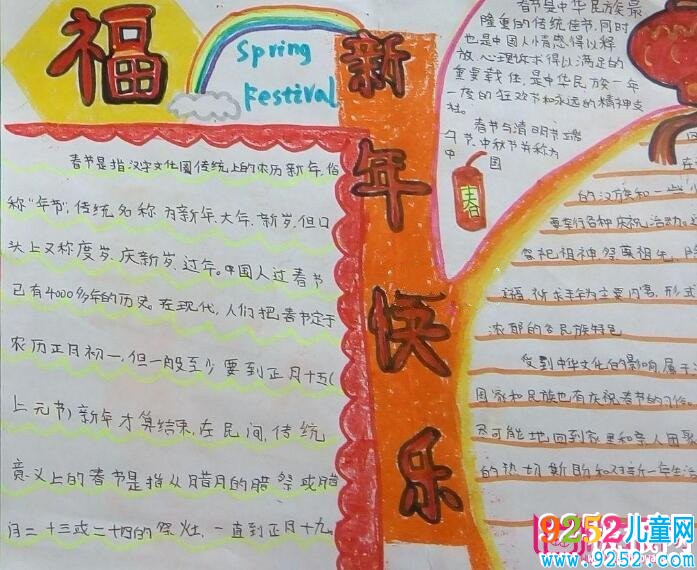 福
Spring
Festival
新年快乐
春节是指汉字文化圈传统上的农历新年,俗
称“年节”,传统名称为新年、大年、新岁,但口
头上又称度岁、庆新岁、过年。中国人过春节
已有4000多年的历史。在现代,人们把春节定于
农历正月初一,但一般至少要到正月十五(
上元节)新年才算结束,在民间,传统
意义上的春节是指从腊月的腊祭或腊
月二十三或二十四的祭灶,一直到正月十九
春节是中华民族最
隆重的传统佳节,同时
也是中国人情感得以释
放、心理诉求得以满足的
重要载体,是中华民族一年
一度的狂欢节和永远的精神支
柱。
春节与清明节、端
午节、中秋节并称为
中国
春
在
的汉族和一些
要举行各种庆祝活动。
祭祀祖神、祭奠祖先、除
福、祈求丰年为主要内容,形式
浓郁的各民族特色
受到中华文化的影响,属于
国家和民族也有庆祝春节的习俗。
尽可能地回到家里和亲人团聚
的热切期盼和对新一年生活
9252儿童网
www.9252.com